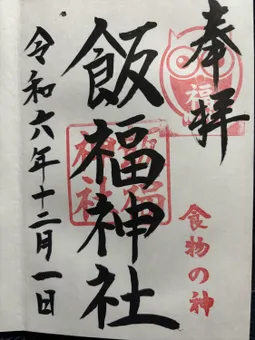 奉拝
福
食物の神
飯福神社
飯福神社
令和六年十二月一日